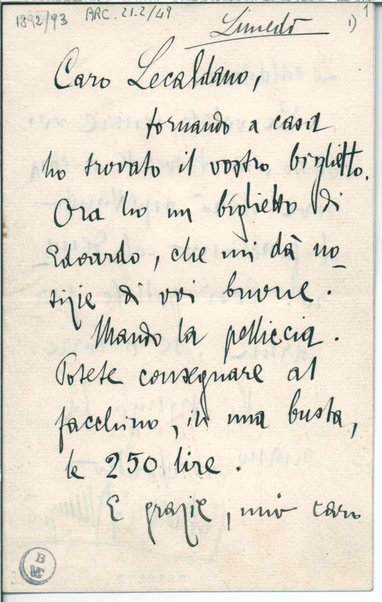 1892/93 ARC. 21.2/49 1
Lunedò 1)
Caro Lecaldano,
tornando a casa
ho trovato il vostro biglietto.
Ora ho un biglietto di
Edoardo, che mi dà no-
tizie di voi buone.
Mando la pelliccia.
Potete consegnare al
facchino, in una busta,
le 250 lire.
E grazie, mio caro
B